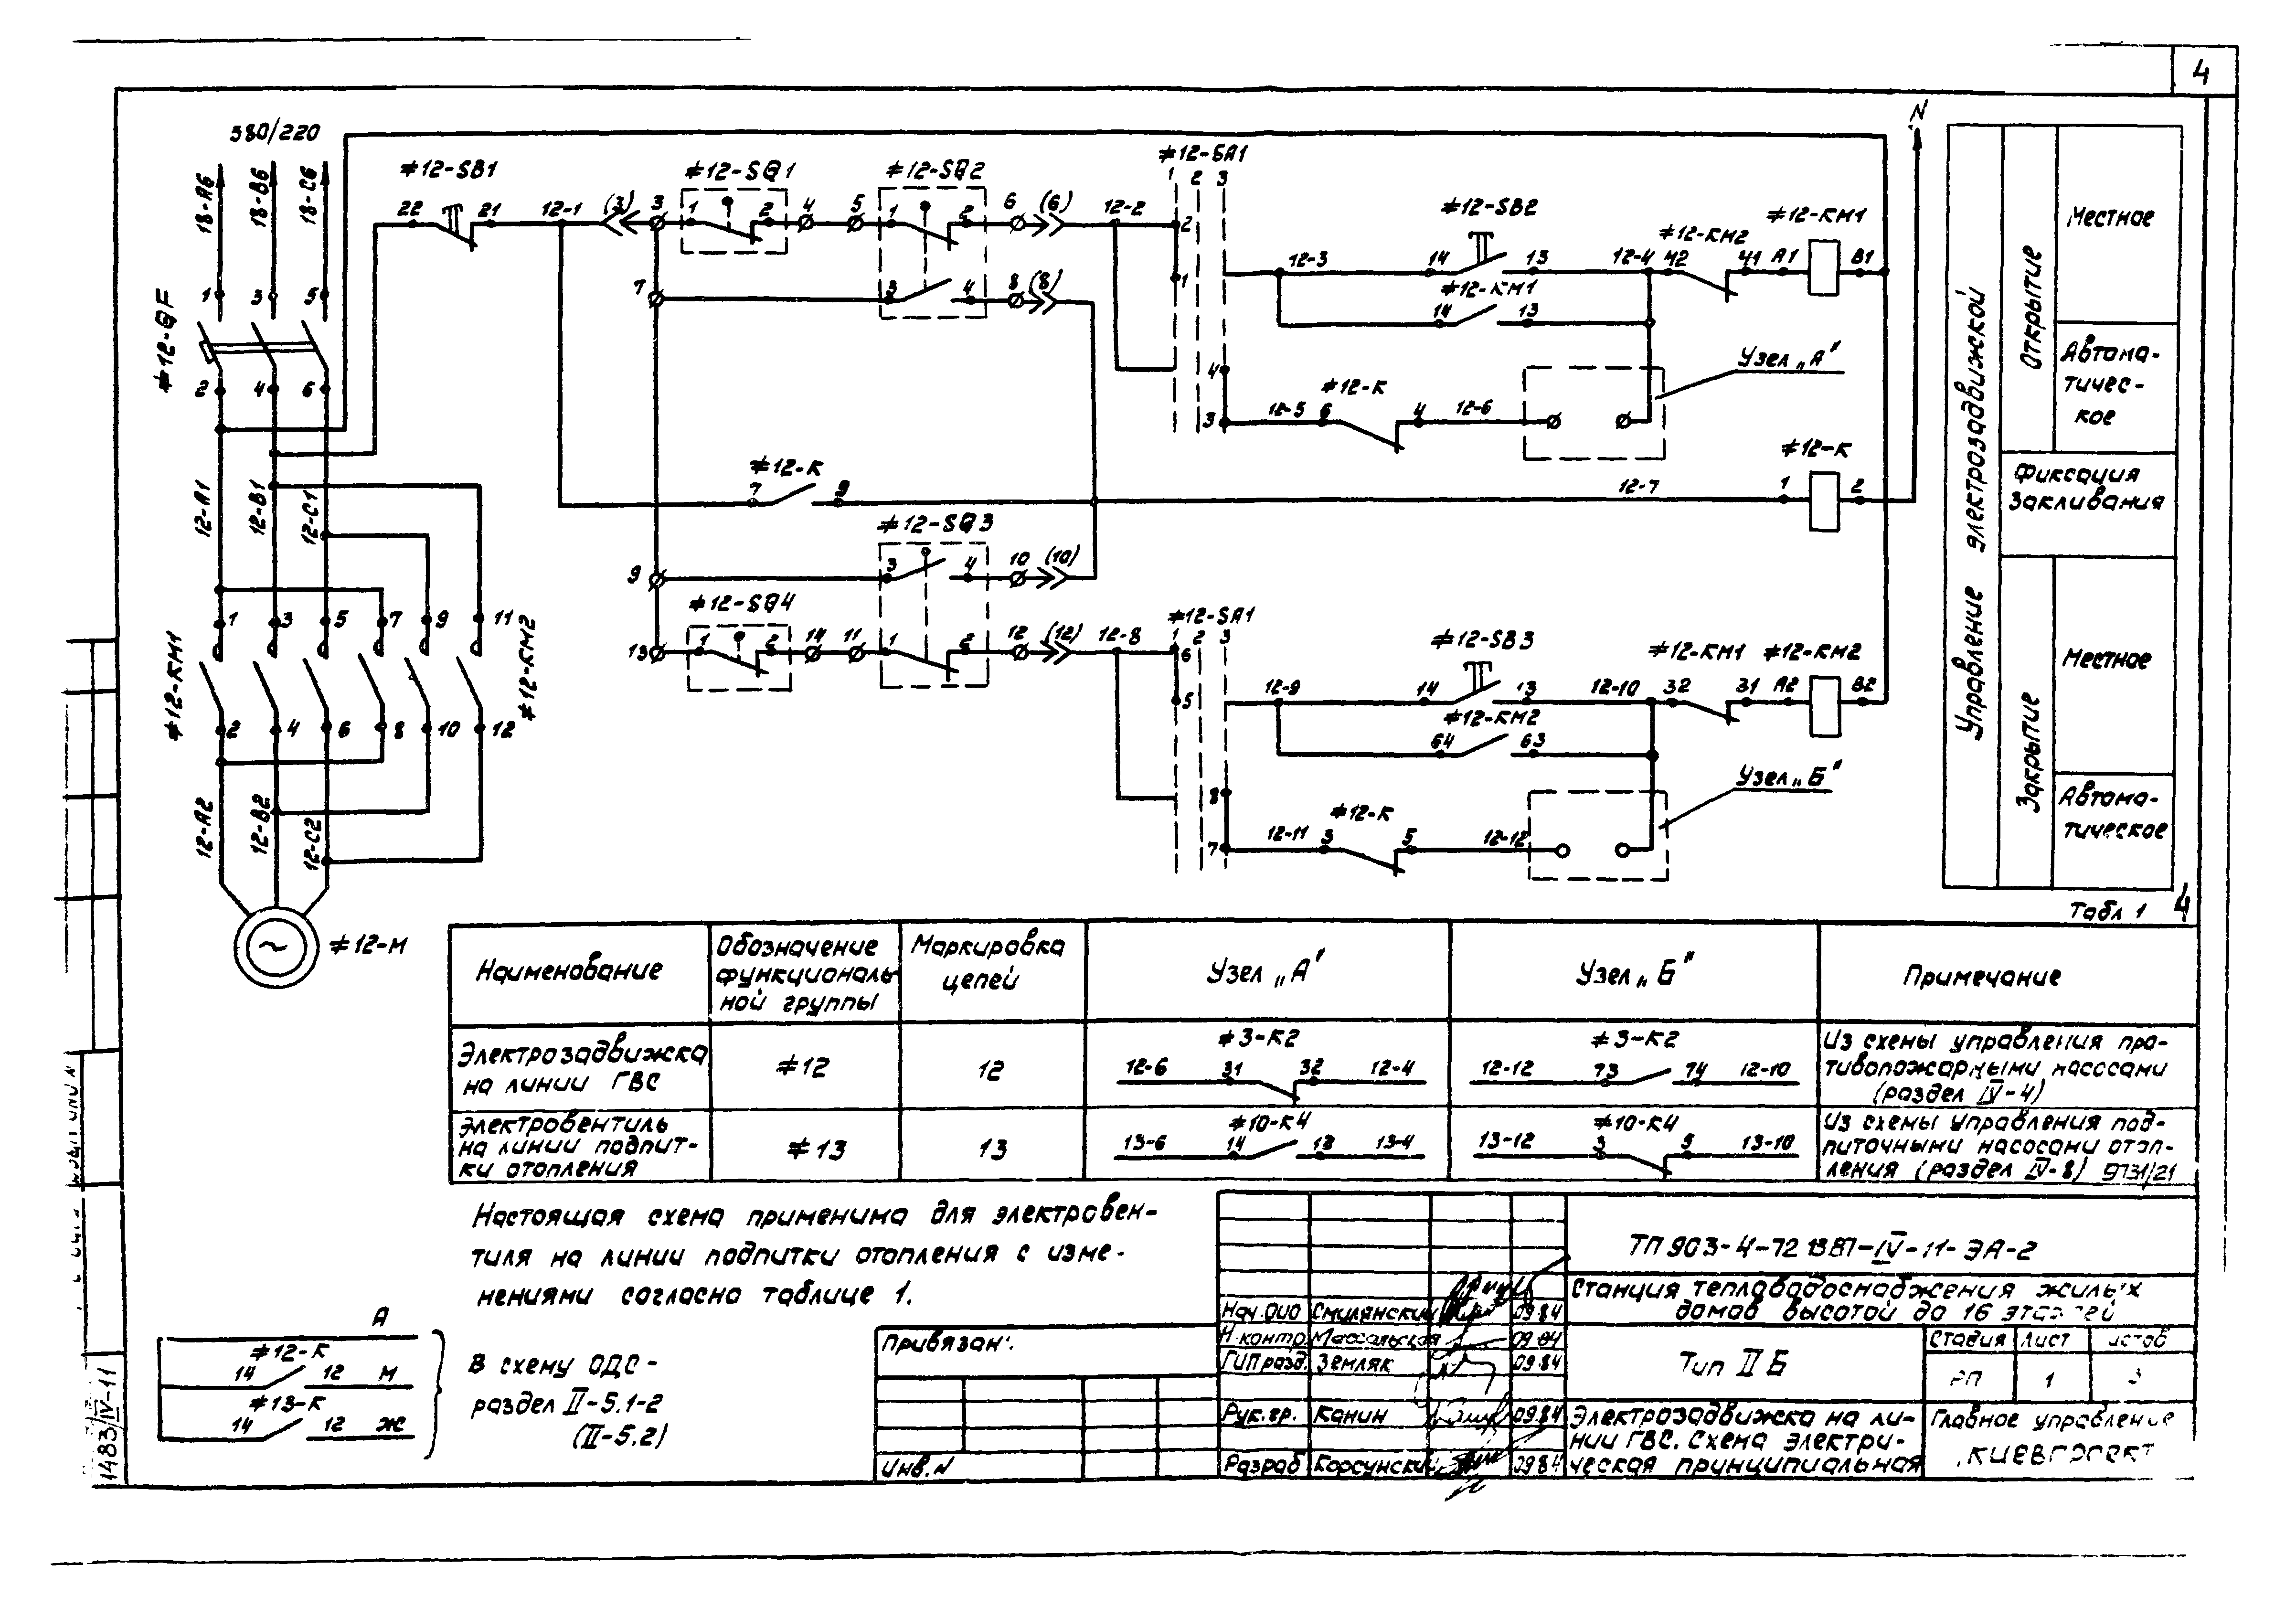 4
380/220
18-А6
18-В6
18-С6
≠12-SB1
22
21
12-1
(3)
3
≠12-SQ1
1
2
4
5
≠12-SQ2
1
2
6
(6)
12-2
≠12-SA1
1 2 3
2
1
12-3
≠12-SB2
14
13
12-4
≠12-КМ2
42
41
≠12-КМ1
А1
В1
N
7
3
4
8
(8)
≠12-КМ1
14
13
4
3
12-5
6
≠12-К
4
12-6
Узел „А"
≠12-QF
1
3
5
2
4
6
12-А1
12-В1
12-С1
≠12-К
7
9
12-7
≠12-К
1
2
≠12-SQ3
9
3
4
10
(10)
≠12-SQ4
13
1
2
14
11
1
2
12
(12)
12-8
≠12-SA1
1 2 3
6
5
12-9
≠12-SB3
14
13
12-10
≠12-КМ1
32
31
≠12-КМ2
А2
В2
≠12-КМ2
64
63
8
7
12-11
3
≠12-К
5
12-12
Узел „Б"
≠12-КМ1
1
3
5
7
9
11
≠12-КМ2
2
4
6
8
10
12
12-А2
12-В2
12-С2
≠12-М
Управление электрозадвижкой
Открытие
Местное
Автома-
тичес-
кое
Фиксация
Закливания
Закрытие
Местное
Автома-
тическое
Табл 1
4
Наименование
Обозначение
функциональ-
ной группы
Маркировка
цепей
Узел „А"
Узел „Б"
Примечание
Электрозадвижка
на линии ГВС
≠12
12
≠3-К2
12-6 31 32 12-4
≠3-К2
12-12 73 74 12-10
Из схемы управления про-
тивопожарными насосами
(раздел IV-4)
Электровентиль
на линии подпит-
ки отопления
≠13
13
≠10-К4
13-6 14 12 13-4
≠10-К4
13-12 3 5 13-10
Из схемы управления под-
питочными насосами отоп-
ления (раздел IV-8) 9731/21
Настоящая схема применима для электровен-
тиля на линии подпитки отопления с изме-
нениями согласно таблице 1.
А
≠12-К
14 12 М
≠13-К
14 12 Ж
В схему ОДС-
раздел II-5.1-2
(II-5.2)
1483/IV-11
Привязан:
Инв.N
Нач.ОИО Смилянский 09.84
Н.контр. Массальская 09.84
ГИП разд. Земляк 09.84
Рук.гр. Канин 09.84
Разраб Корсунский 09.84
Станция тепловодоснабжения жилых
домов высотой до 16 этажей
Тип II Б
Стадия Лист
РП 1 3
Электрозадвижка на ли-
нии ГВС. Схема электри-
ческая принципиальная
Главное управление